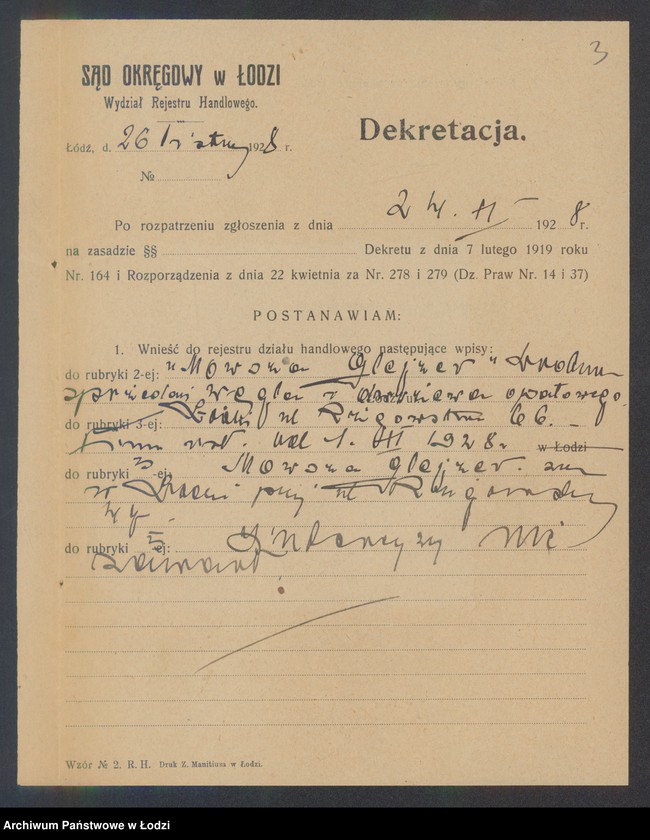 3
SĄD OKRĘGOWY w ŁODZI
Wydział Rejestru Handlowego.
Dekretacja.
Łódź, d. 26 1928 r.
№
Po rozpatrzeniu zgłoszenia z dnia 24. II 1928 r.
na zasadzie §§ Dekretu z dnia 7 lutego 1919 roku
Nr. 164 i Rozporządzenia z dnia 22 kwietnia za Nr. 278 i 279 (Dz. Praw Nr. 14 i 37)
POSTANAWIAM:
1. Wnieść do rejestru działu handlowego następujące wpisy:
do rubryki 2-ej: "Mowsza Glejzer"
sprzedaż węgla i drzewa opałowego
do rubryki 3-ej: ul 66.
od 1. III 1928 r w Łodzi
do rubryki 3-ej: Mowsza Glejzer. zam
w Łodzi przy ul
44.
do rubryki 5 ej: Intercyzy nie
zawarł
Wzór № 2. R. H. Druk Z. Manitiusa w Łodzi.
Archiwum Państwowe w Łodzi